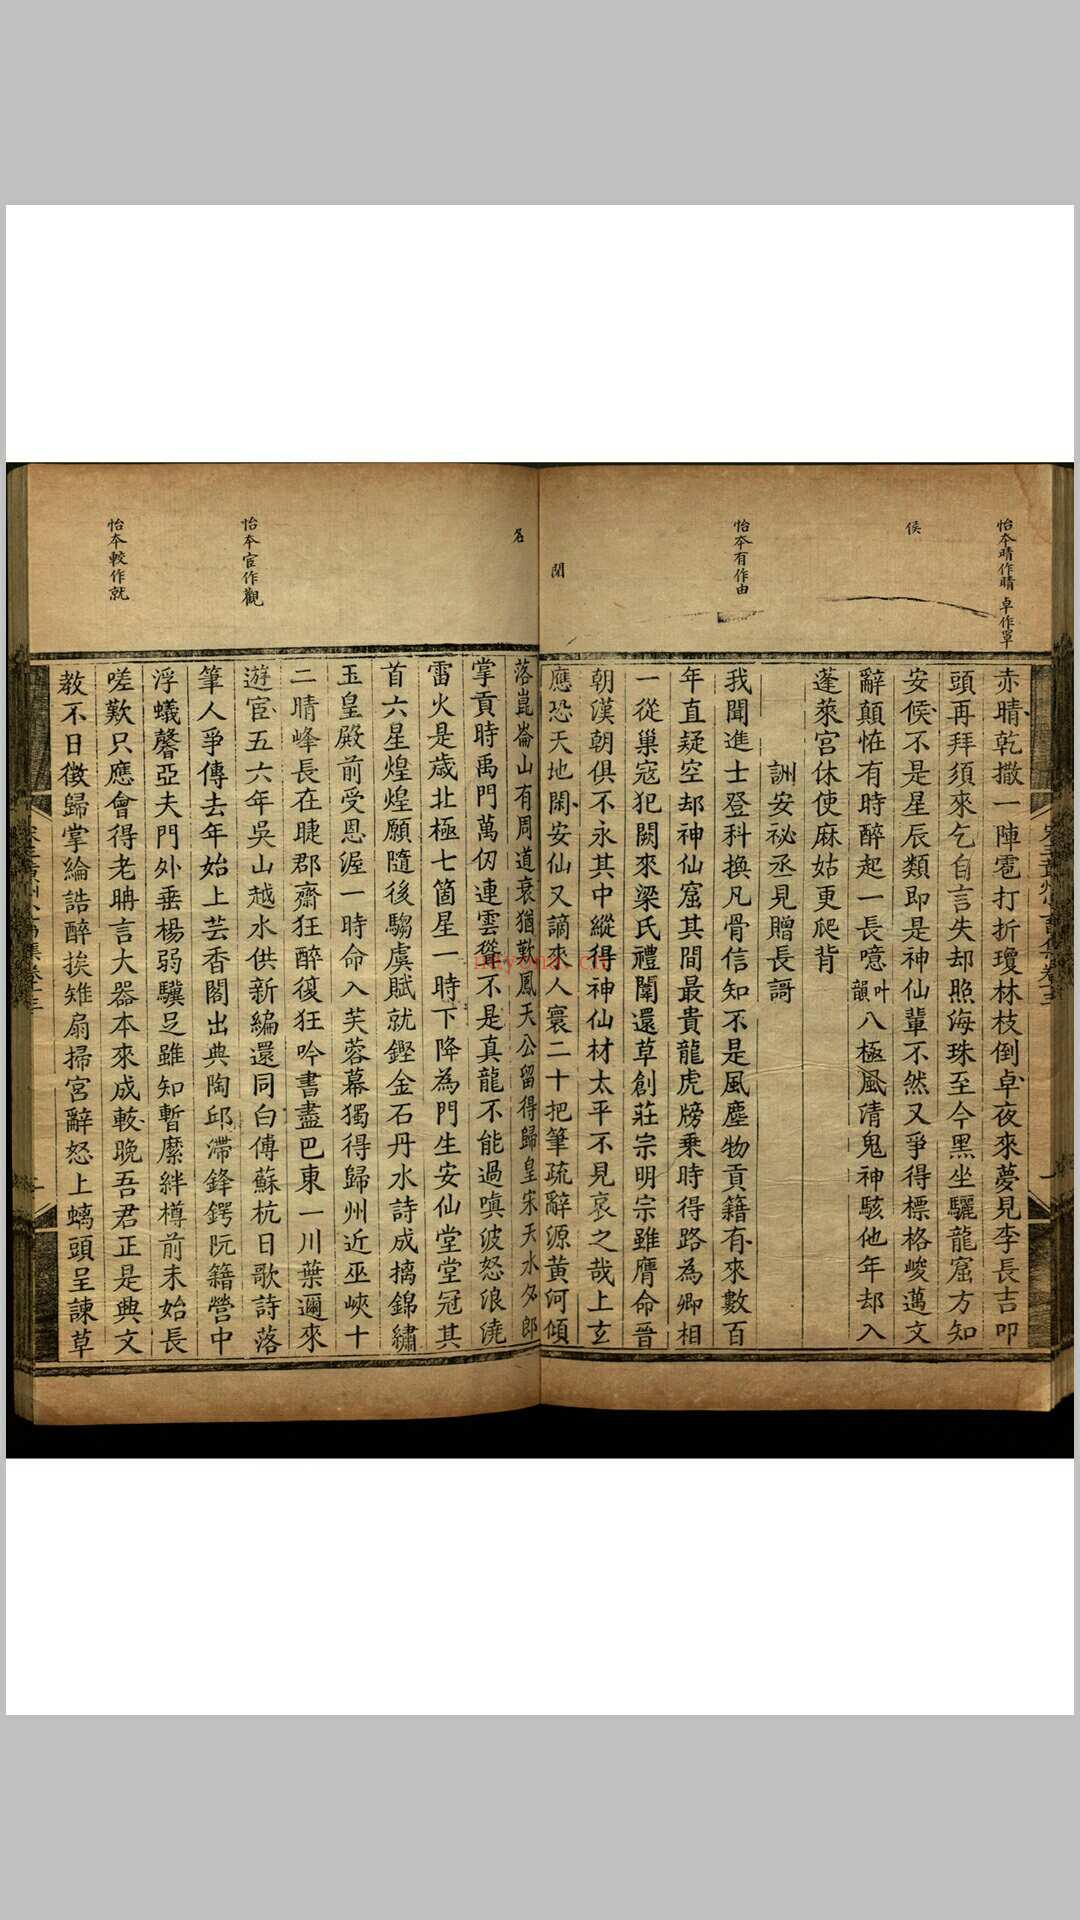 怡本晴作睛 卓作罩
侯
怡本有作由
閉
名
怡本宦作觀
怡本較作就
赤晴乾撒一陣雹打折瓊林枝倒卓夜來夢見李長吉叩
頭再拜須來乞自言失却照海珠至今黑坐驪龍窟方知
安侯不是星辰類即是神仙輩不然又爭得標格峻邁文
辭顛怪有時醉起一長噫叶韻八極風清鬼神駭他年却入
蓬萊宮休使麻姑更爬背
詶安祕丞見贈長謌
我聞進士登科換凡骨信知不是風塵物貢籍有來數百
年直疑空却神仙窟其間最貴龍虎牓乘時得路為卿相
一從巢寇犯闕來梁氏禮闈還草創莊宗明宗雖膺命晉
朝漢朝俱不永其中縱得神仙材太平不見哀之哉上玄
應恐天地閑安仙又謫來人寰二十把筆疏辭源黃河傾
落崑崙山有周道衰猶歎鳳天公留得歸皇宋天水名郎
掌貢時禹門萬仞連雲聳不是真龍不能過嗔波怒浪澆
雷火是歲北極七箇星一時下降為門生安仙堂堂冠其
首六星煌煌願隨後騶虞賦就鏗金石丹水詩成摛錦繡
玉皇殿前受恩渥一時命入芙蓉幕獨得歸州近巫峽十
二晴峰長在睫郡齋狂醉復狂吟書盡巴東一川葉邇來
遊宦五六年吳山越水供新編還同白傳蘇杭日歌詩落
筆人爭傳去年始上芸香閣出典陶邱滯鋒鍔阮籍營中
浮蟻馨亞夫門外垂楊弱驥足雖知暫縻絆樽前未始長
嗟歎只應會得老聃言大器本來成較晚吾君正是興文
教不日徵歸掌綸誥醉挨雉扇掃宮辭怒上螭頭呈諫草